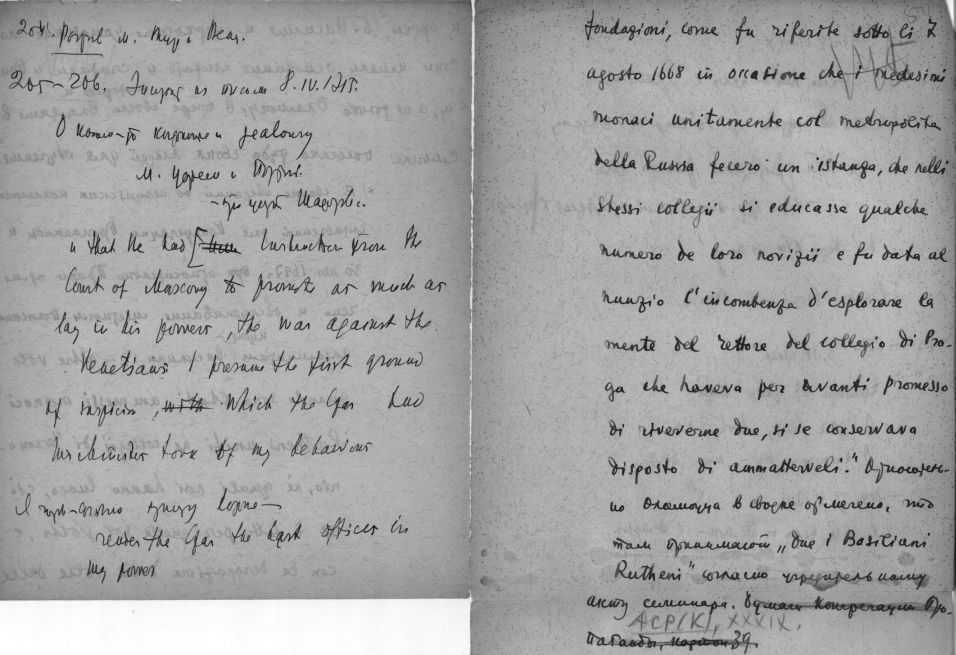 204.
205–206. 8.IV.1715.
О каком-то jealousy
М. Царем и
при царе
that He had Instruction from the
Court of Muscovy to promote as much as
lay in his powers, the War against the
Venetians I presume the first ground
of suspicion, with which the Czar had
his Minister took of my behaviour
render the Czar the best offices in
my power
fondazioni, come fu riferite sotto li 7
agosto 1668 in occasione che i medesimi
monaci unitamente col metropolita
della Russia fecero un'istanza, che nelli
stessi collegii si educasse qualche
numero de loro novizii e fu data al
nunzio l'incombenza d'esplorare la
mente del rettore del collegio di Pra-
ga che haveva per avanti promesso
di riceverne due, si se conservava
disposto di ammatterveli." Относитель-
но Оломоуца в сводке отмечено, что
там принимают „due i Basiliani
Rutheni" согласно учредительному
акту семинара. Бумаги Конгрегации Про-
ACP(K), XXXIX.
паганды, картон 39.